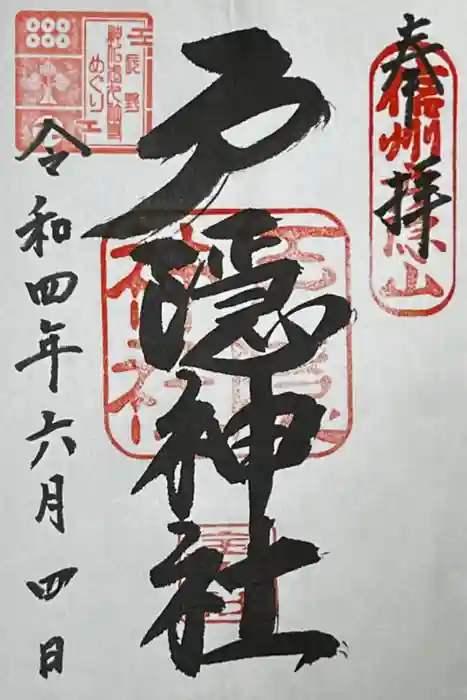 奉拝
信州戸隠山
戸隠神社
令和四年六月四日
長野
めぐり